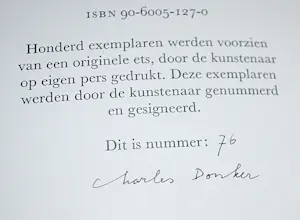 ISBN 90-6005-127-0
Honderd exemplaren werden voorzien
van een originele ets, door de kunstenaar
op eigen pers gedrukt. Deze exemplaren
werden door de kunstenaar genummerd
en gesigneerd.
Dit is nummer: 76
Charles Donker